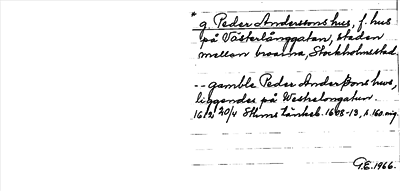 * g. Peder Anderssons hus, f. hus
på Västerlånggatan, staden
mellan broarna, Stockholms stad.
-- gamble Peder Anderßons huus,
liggendes på Westrelongatun.
1612 20/4 Sthms tänkeb. 1608-13, s. 160
G.E. 1966.